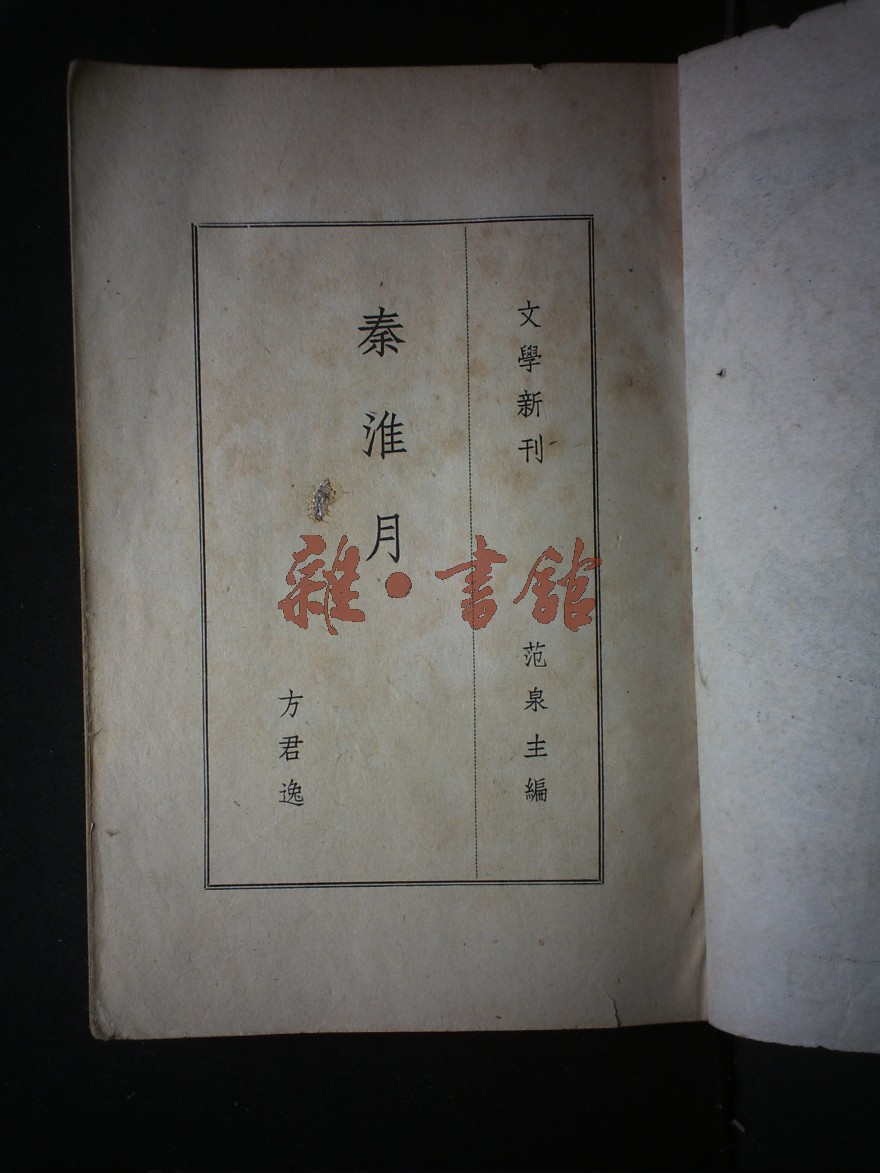 文學新刊
范泉主編
秦淮月
方君逸
雜·書館